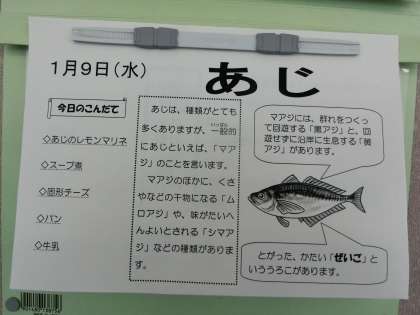 1月9日(水)
あじ
今日のこんだて
◇あじのレモンマリネ
◇スープ煮
◇固形チーズ
◇パン
◇牛乳
あじは、種類がとても
多くありますが、一般的
にあじといえば、「マア
ジ」のことを言います。
マアジのほかに、くさ
やなどの干物になる「ム
ロアジ」や、味がたいへ
んよいとされる「シマア
ジ」などの種類がありま
す。
マアジには、群れをつくっ
て回遊する「黒アジ」と、回
遊せずに沿岸に生息する「黄
アジ」があります。
とがった、かたい「ぜいご」と
いううろこがあります。